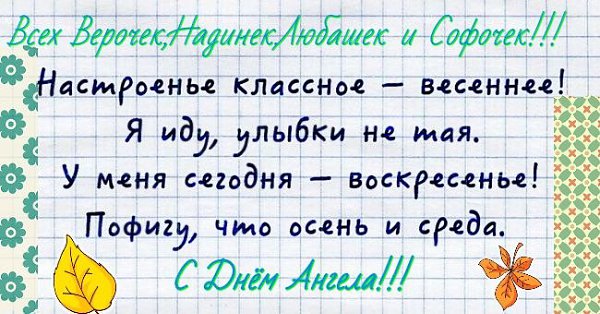 Всех Верочек,Надинек,Любашек и Софочек!!!
Настроенье классное — весеннее!
Я иду, улыбки не тая.
У меня сегодня — воскресенье!
Пофигу, что осень и среда.
С Днём Ангела!!!